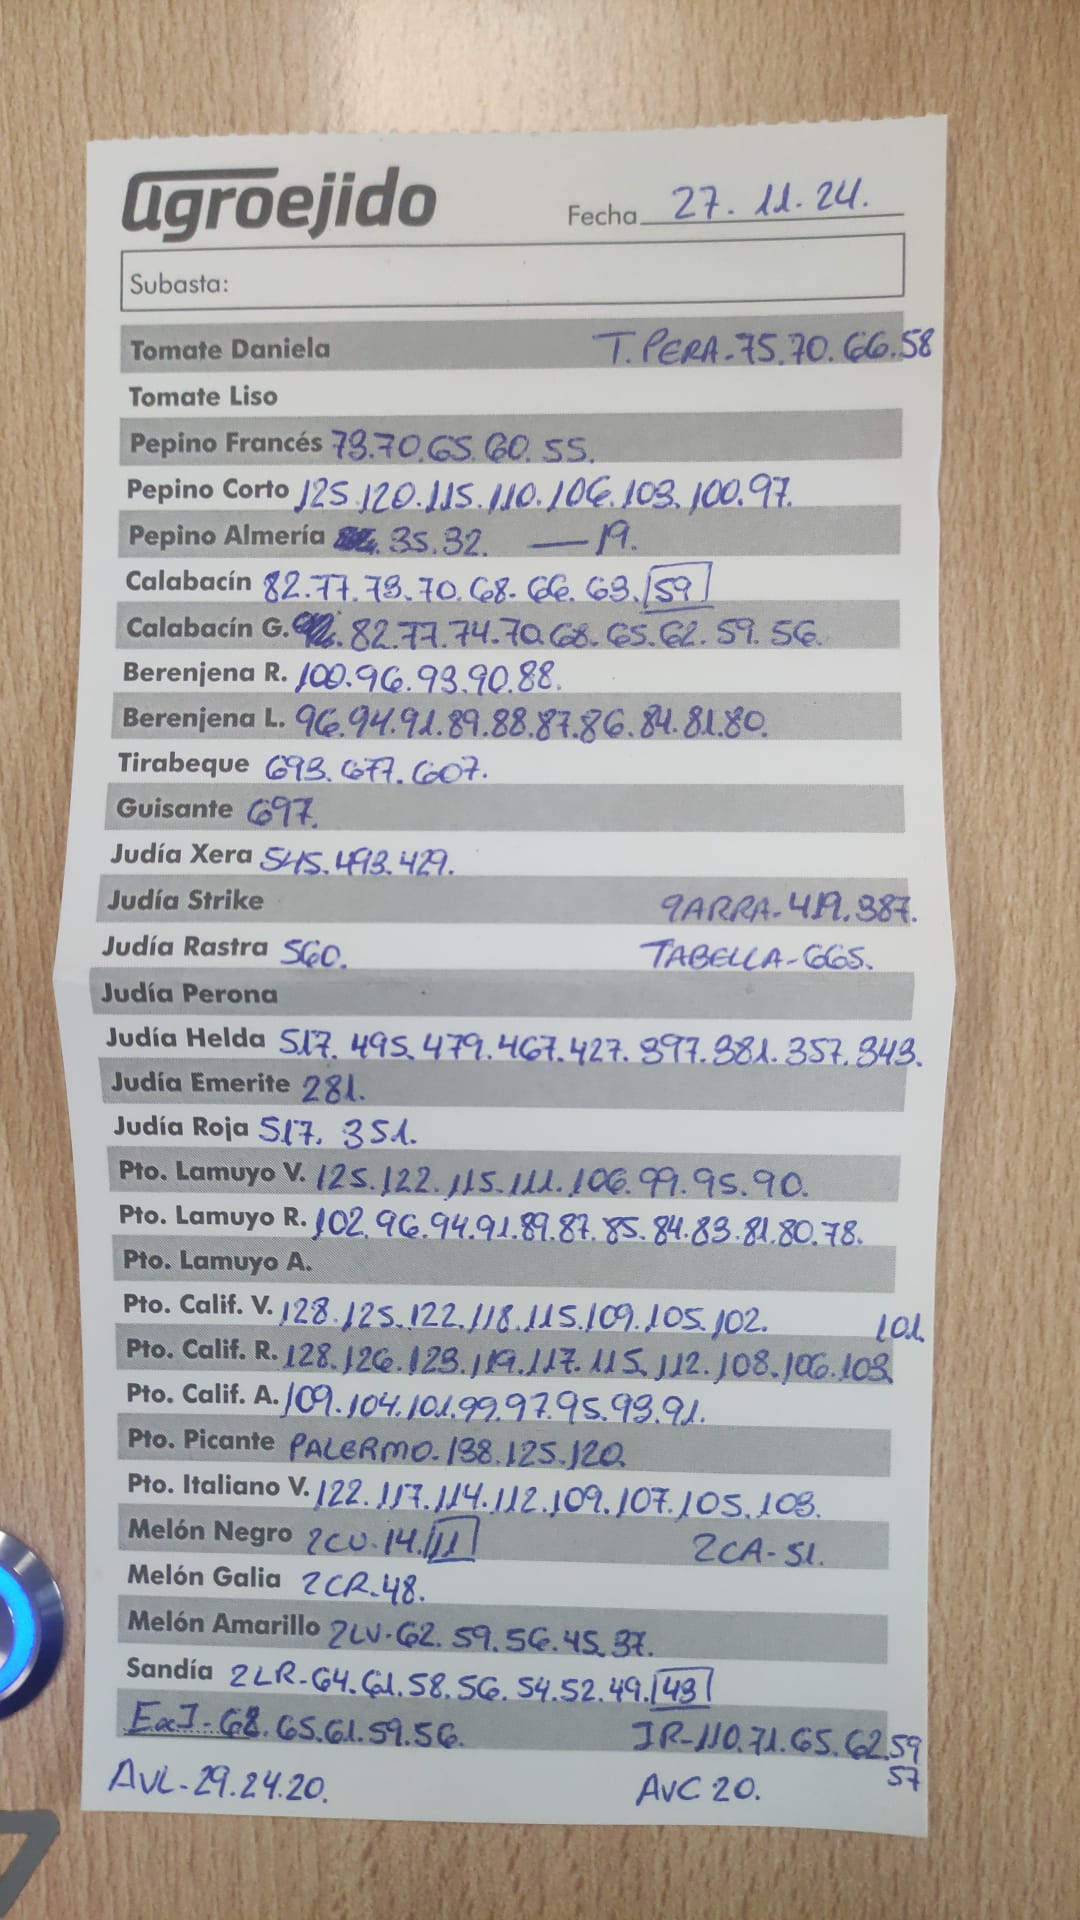 agroejido
Fecha 27.11.24.
Subasta:
Tomate Daniela T. PERA-75.70.66.58
Tomate Liso
Pepino Francés 73.70.65.60.55.
Pepino Corto 125.120.115.110.106.103.100.97.
Pepino Almería 35.32. —19.
Calabacín 82.77.73.70.68.66.63.59
Calabacín G. 82.77.74.70.68.65.62.59.56.
Berenjena R. 100.96.93.90.88.
Berenjena L. 96.94.91.89.88.87.86.84.81.80.
Tirabeque 693.677.607.
Guisante 697.
Judía Xera 545.493.429.
Judía Strike GARRA-419.387.
Judía Rastra 560. TABELLA-665.
Judía Perona
Judía Helda 517.495.479.467.427.397.381.357.343.
Judía Emerite 281.
Judía Roja 517.351.
Pto. Lamuyo V. 125.122.115.111.106.99.95.90.
Pto. Lamuyo R. 102.96.94.91.89.87.85.84.83.81.80.78.
Pto. Lamuyo A.
Pto. Calif. V. 128.125.122.118.115.109.105.102. 101.
Pto. Calif. R. 128.126.123.119.117.115.112.108.106.103.
Pto. Calif. A. 109.104.101.99.97.95.93.91.
Pto. Picante PALERMO-138.125.120.
Pto. Italiano V. 122.117.114.112.109.107.105.103.
Melón Negro 2CU-14.11 2CA-51.
Melón Galia 2CR-48.
Melón Amarillo 2LV-62.59.56.45.37.
Sandía 2LR-64.61.58.56.54.52.49.43
ExJ-68.65.61.59.56. JR-110.71.65.62.59
57
AVL-29.24.20. AVC 20.